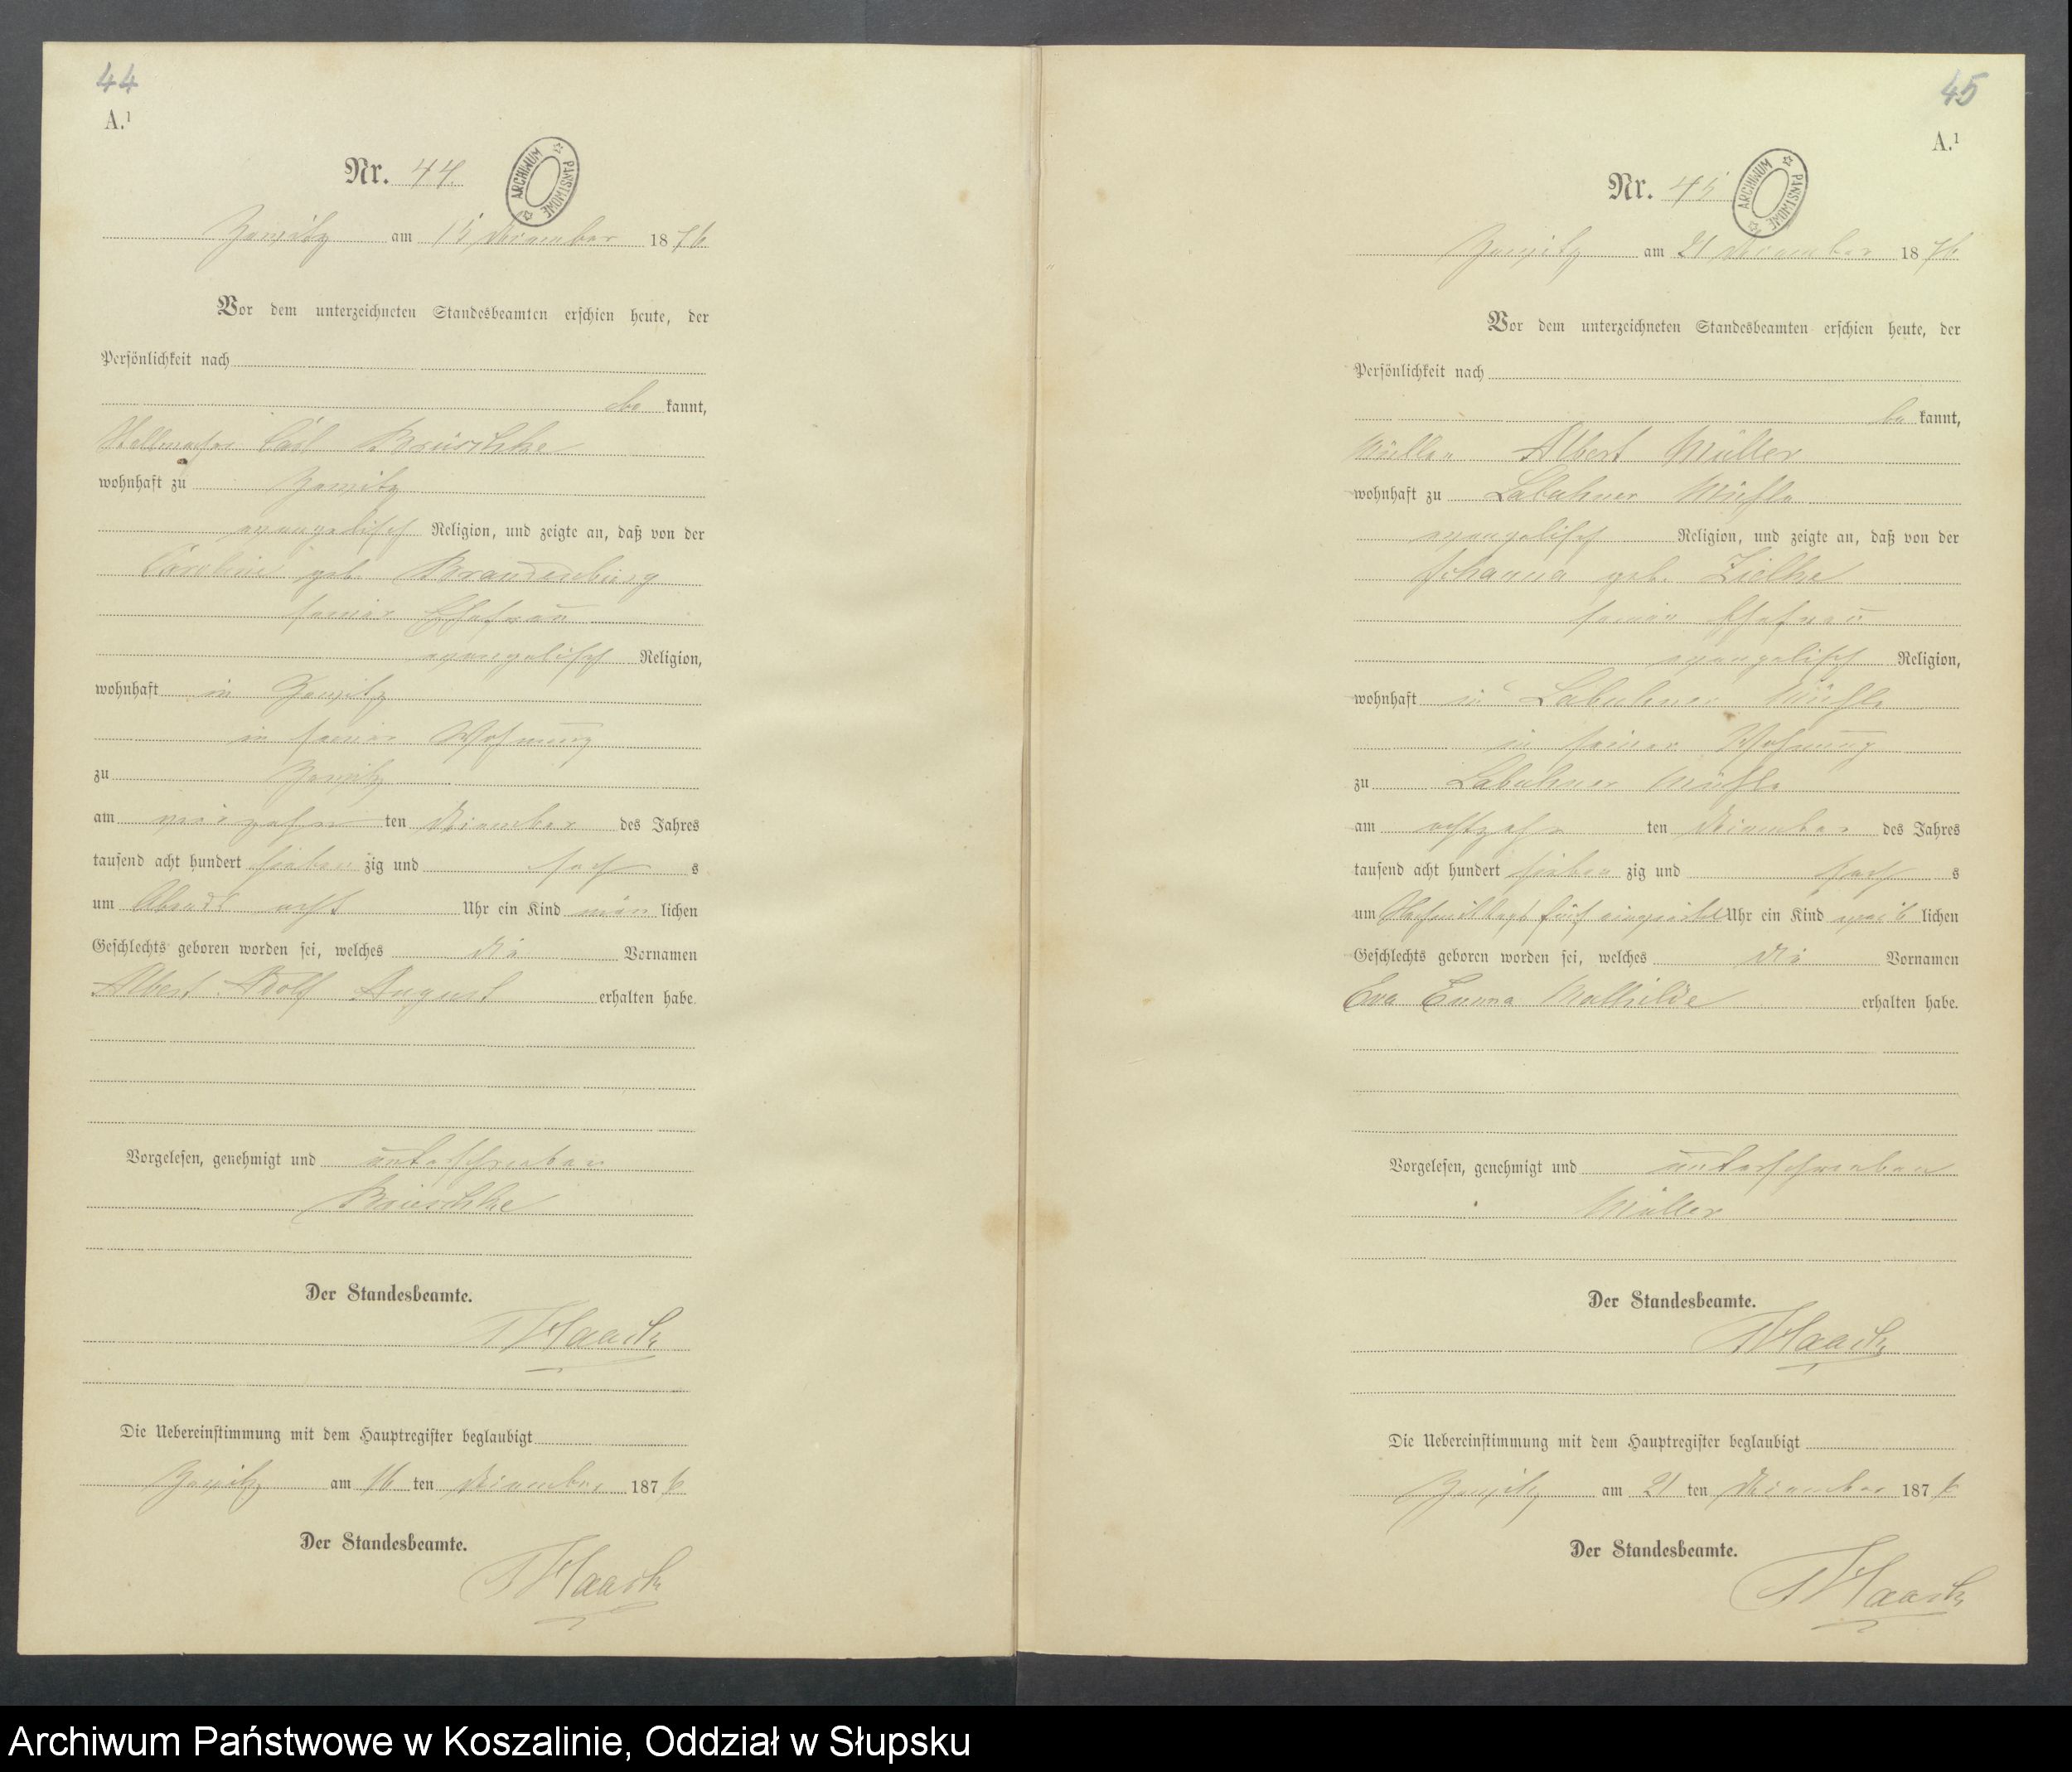 44
A.¹
Nr. 44.
ARCHIWUM PAŃSTWOWE
Zewitz am 15 December 1876
Vor dem unterzeichneten Standesbeamten erschien heute, der
Persönlichkeit nach
be kannt,
Stellmacher Carl Brüschke
wohnhaft zu Zewitz
evangelisch Religion, und zeigte an, daß von der
Caroline geb. Brandenburg
seiner Ehefrau
evangelisch Religion,
wohnhaft in Zewitz
in seiner Wohnung
zu Zewitz
am vierzehn ten December des Jahres
tausend acht hundert sieben zig und sech s
um Abends acht Uhr ein Kind män lichen
Geschlechts geboren worden sei, welches die Vornamen
Albert Adolf August erhalten habe.
Vorgelesen, genehmigt und unterschrieben
Brüschke
Der Standesbeamte.
Haack
Die Uebereinstimmung mit dem Hauptregister beglaubigt
Zewitz am 16 ten December 1876
Der Standesbeamte.
Haack
45
A.¹
Nr. 45
ARCHIWUM PAŃSTWOWE
Zewitz am 21 December 1876
Vor dem unterzeichneten Standesbeamten erschien heute, der
Persönlichkeit nach
be kannt,
Müller Albert Müller
wohnhaft zu Labuhner Mühle
evangelisch Religion, und zeigte an, daß von der
Johanna geb. Zielke
seiner Ehefrau
evangelisch Religion,
wohnhaft in Labuhner Mühle
in seiner Wohnung
zu Labuhner Mühle
am achtzehn ten December des Jahres
tausend acht hundert sieben zig und sech s
um Nachmittags fünf Uhr ein Kind weib lichen
Geschlechts geboren worden sei, welches die Vornamen
Eva Emma Mathilde erhalten habe.
Vorgelesen, genehmigt und unterschrieben
Müller
Der Standesbeamte.
Haack
Die Uebereinstimmung mit dem Hauptregister beglaubigt
Zewitz am 21 ten December 1876
Der Standesbeamte.
Haack
Archiwum Państwowe w Koszalinie, Oddział w Słupsku